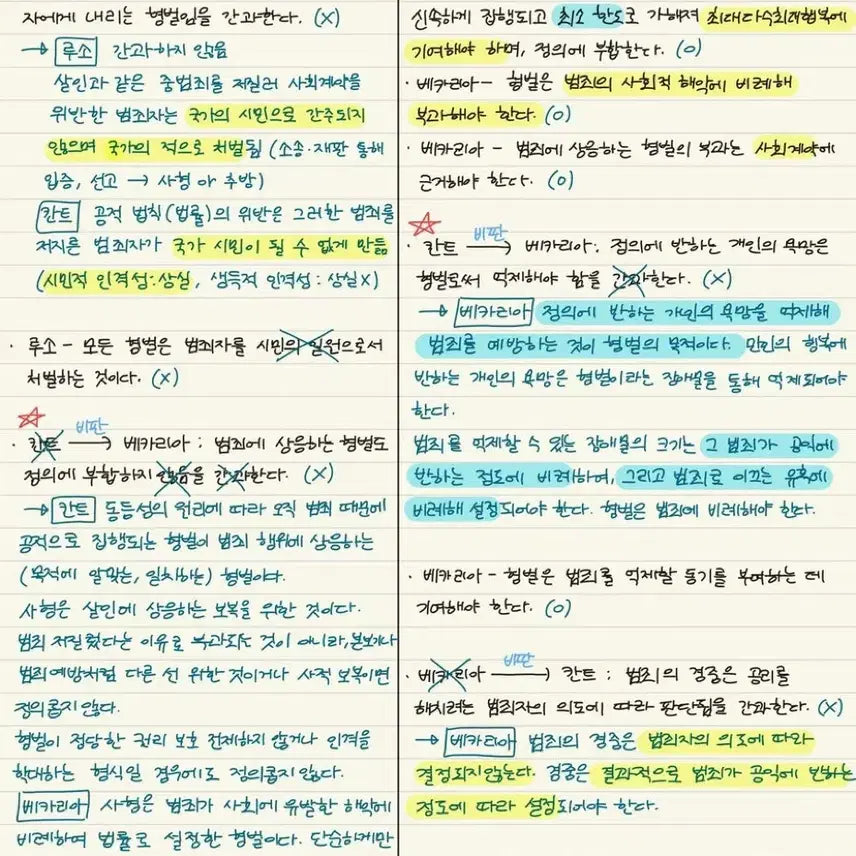 자에게 내리는 형벌임을 간과한다. (X)
→ 루소 간과하지 않음
살인과 같은 중범죄를 저질러 사회계약을
위반한 범죄자는 국가의 시민으로 간주되지
않으며 국가의 적으로 처벌됨 (소송·재판 통해
입증, 선고 → 사형 or 추방)
칸트 공적 법칙(법률)의 위반은 그러한 범죄를
저지른 범죄자가 국가 시민이 될 수 없게 만듦
(시민적 인격성: 상실, 생득적 인격성: 상실X)
· 루소 - 모든 형벌은 범죄자를 시민의 일원으로서
처벌하는 것이다. (X)
비판
· 칸트 → 베카리아 : 범죄에 상응하는 형벌도
정의에 부합하지 않음을 간과한다. (X)
→ 칸트 동등성의 원리에 따라 오직 범죄 때문에
공적으로 집행되는 형벌이 범죄 행위에 상응하는
(목적에 알맞는, 일치하는) 형벌이다.
사형은 살인에 상응하는 보복을 위한 것이다.
범죄 저질렀다는 이유로 부과되는 것이 아니라, 본보기나
범죄예방처럼 다른 선 위한 것이거나 사적 보복이면
정의롭지 않다.
형벌이 정당한 권리 보호 전제하지 않거나 인격을
학대하는 형식일 경우에도 정의롭지 않다.
베카리아 사형은 범죄가 사회에 유발한 해악에
비례하여 법률로 설정한 형벌이다. 단순하게만
신속하게 집행되고 최소 한도로 가해져 최대다수최대행복에
기여해야 하며, 정의에 부합한다. (O)
· 베카리아 - 형벌은 범죄의 사회적 해악에 비례해
부과해야 한다. (O)
· 베카리아 - 범죄에 상응하는 형벌의 부과는 사회계약에
근거해야 한다. (O)
비판
· 칸트 → 베카리아 : 정의에 반하는 개인의 욕망은
형벌로써 억제해야 함을 간과한다. (X)
→ 베카리아 정의에 반하는 개인의 욕망을 억제해
범죄를 예방하는 것이 형벌의 목적이다. 만인의 행복에
반하는 개인의 욕망은 형벌이라는 장애물을 통해 억제되어야
한다.
범죄를 억제할 수 있는 장애물의 크기는 그 범죄가 공익에
반하는 정도에 비례하여, 그리고 범죄로 이끄는 유혹에
비례해 설정되어야 한다. 형벌은 범죄에 비례해야 한다.
· 베카리아 - 형벌은 범죄를 억제할 동기를 부여하는 데
기여해야 한다. (O)
비판
· 베카리아 → 칸트 : 범죄의 경중은 공리를
해치려는 범죄자의 의도에 따라 판단됨을 간과한다. (X)
→ 베카리아 범죄의 경중은 범죄자의 의도에 따라
결정되지않는다. 경중은 결과적으로 범죄가 공익에 반하는
정도에 따라 설정되어야 한다.